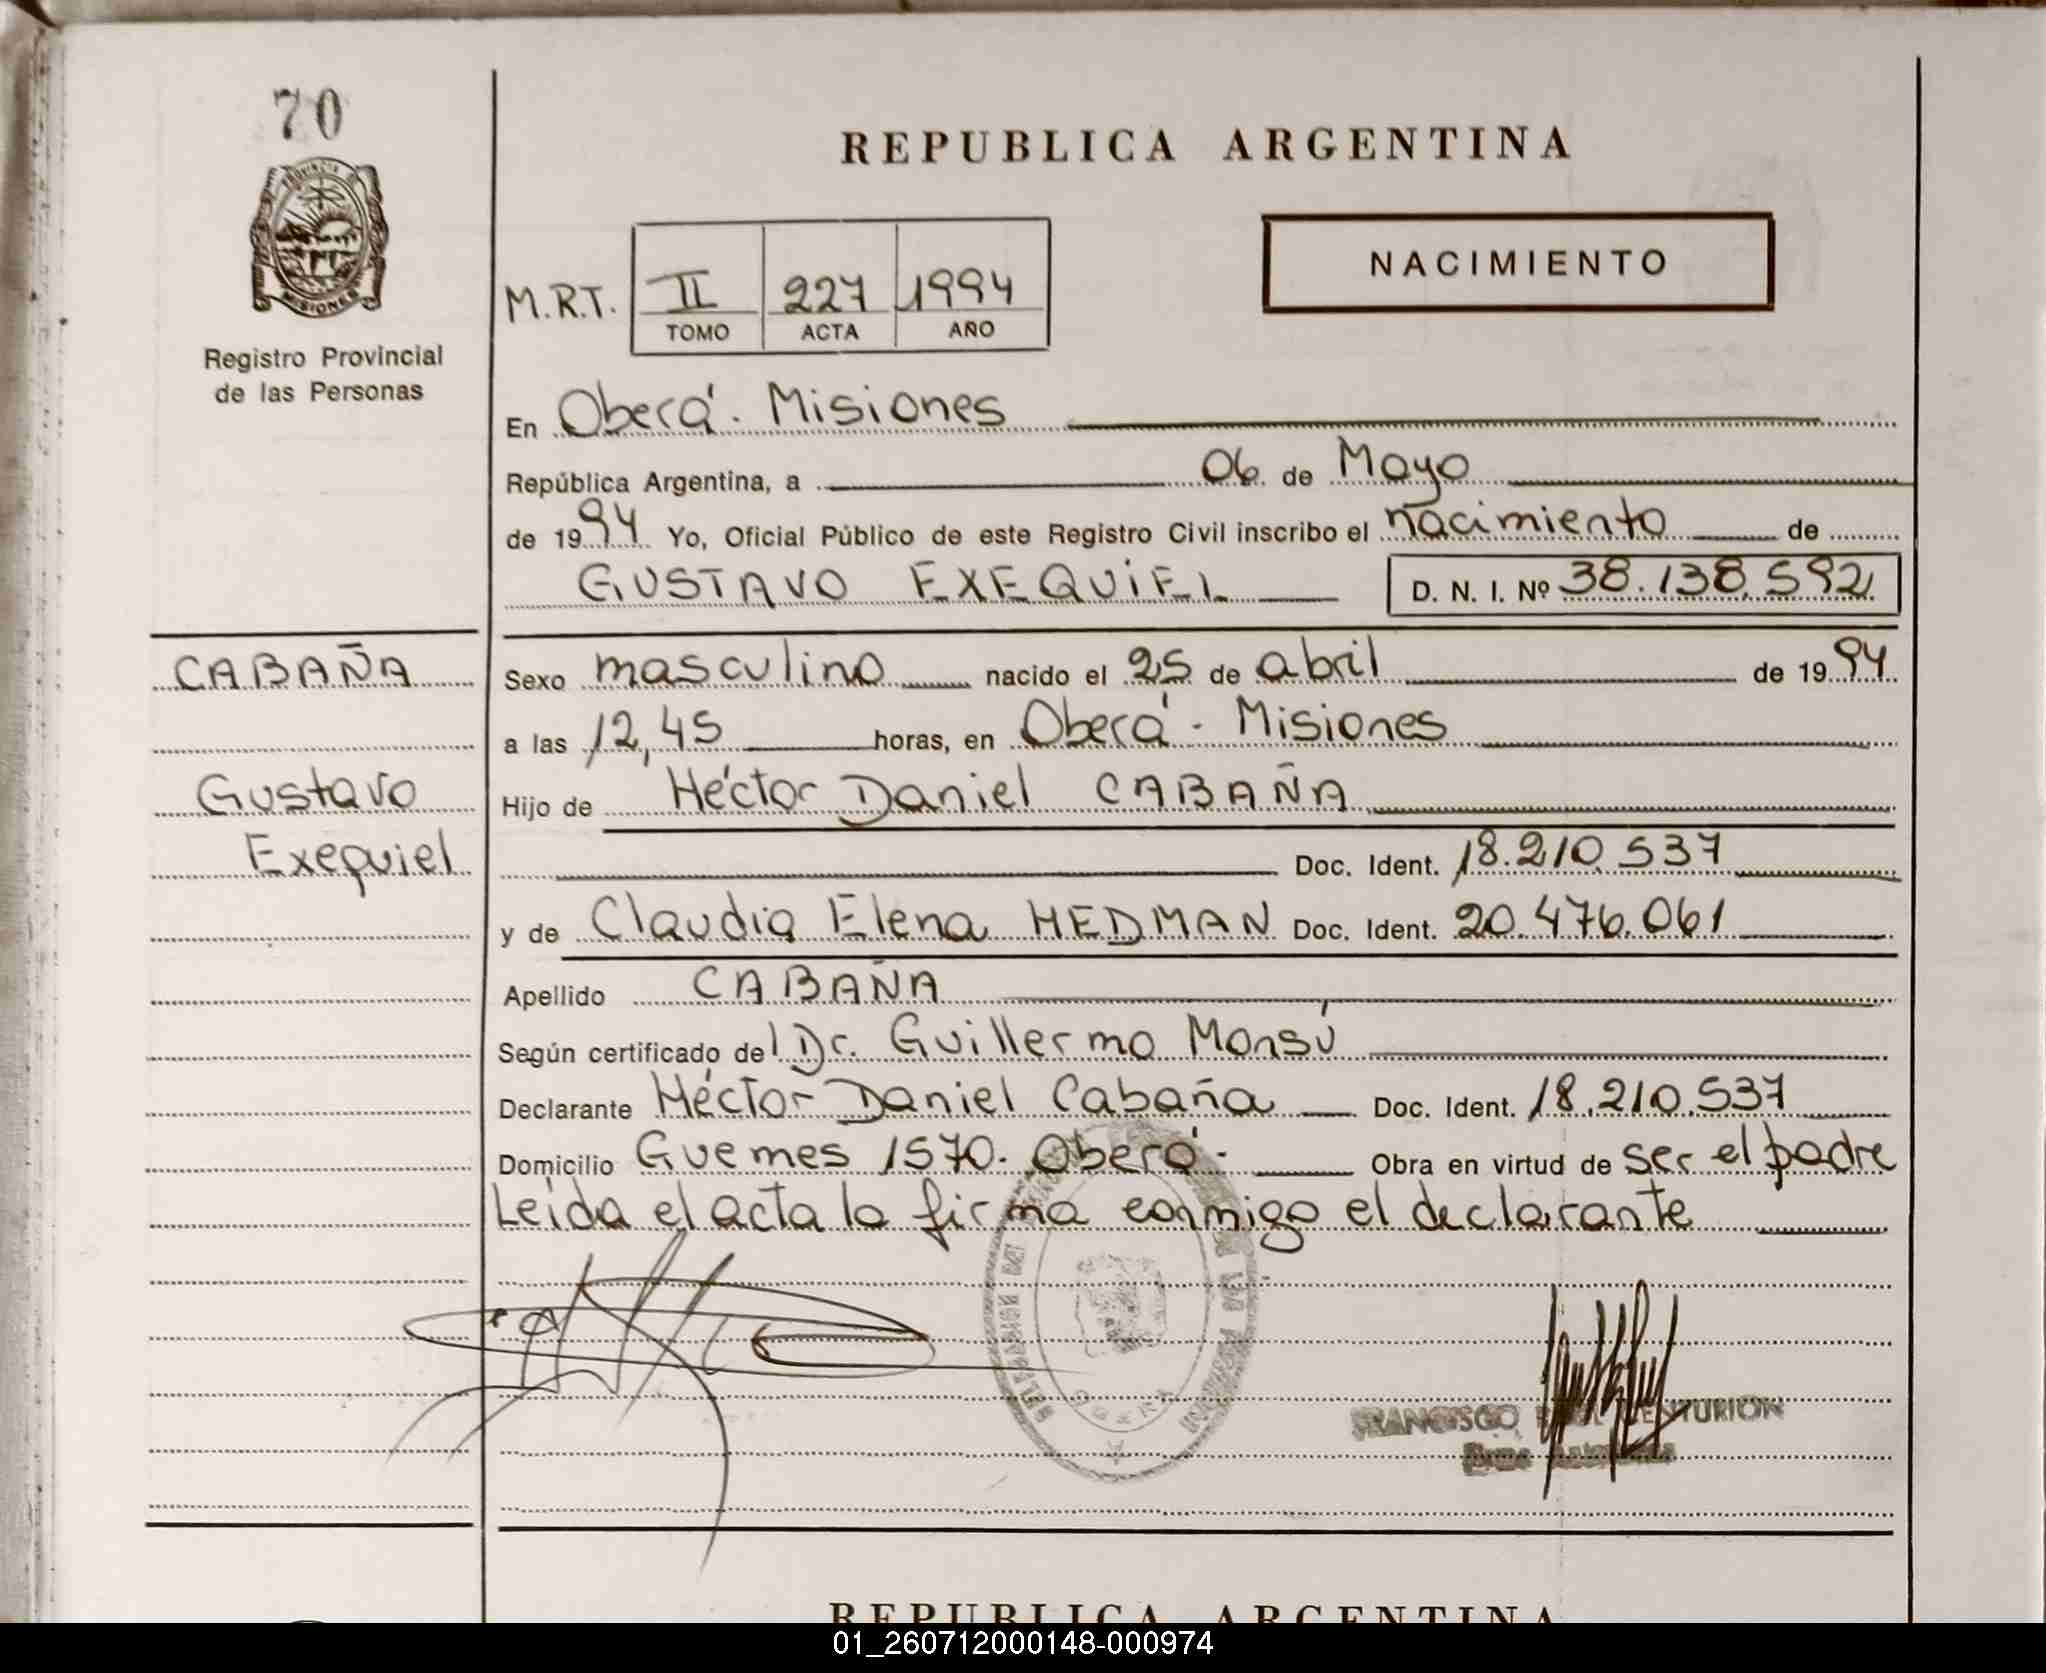 70
PROVINCIA DE
MISIONES
Registro Provincial
de las Personas
REPUBLICA ARGENTINA
NACIMIENTO
M.R.T. II 227 1994
TOMO ACTA AÑO
En Oberá - Misiones
República Argentina, a 06 de Mayo
de 1994 Yo, Oficial Público de este Registro Civil inscribo el nacimiento de
GUSTAVO EXEQUIEL D. N. I. Nº 38.138.592
CABAÑA
Gustavo
Exequiel
Sexo masculino nacido el 25 de abril de 1994
a las 12,45 horas, en Oberá - Misiones
Hijo de Héctor Daniel CABAÑA
Doc. Ident. 18.210.537
y de Claudia Elena HEDMAN Doc. Ident. 20.476.061
Apellido CABAÑA
Según certificado del Dr. Guillermo Monsú
Declarante Héctor Daniel Cabaña Doc. Ident. 18.210.537
Domicilio Guemes 1570. Oberá - Obra en virtud de ser el padre
Leida el acta la firma conmigo el declarante
FRANCISCO CENTURION
REPUBLICA ARGENTINA
01_260712000148-000974